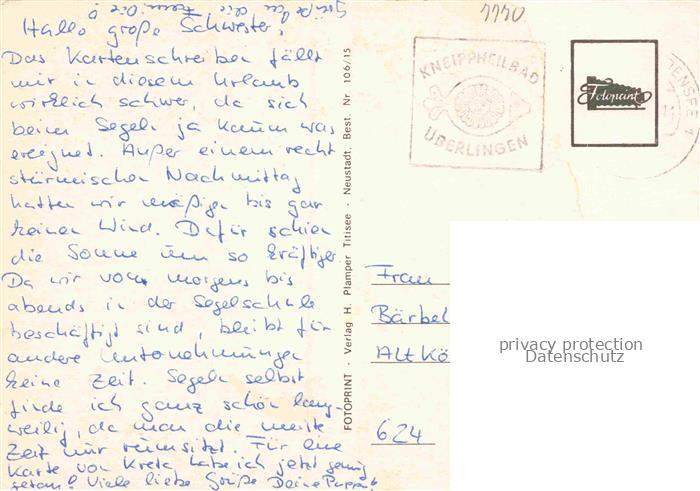 Grüße an die Familie!
1140
Hallo große Schwester,
Das Kartenschreiben fällt
mir in diesem Urlaub
wirklich schwer, da sich
beim Segeln ja kaum was
ereignet. Außer einem recht
stürmischen Nachmittag
hatten wir mäßigen bis gar
keinen Wind. Dafür schien
die Sonne um so kräftiger.
Da wir von morgens bis
abends in der Segelschule
beschäftigt sind, bleibt für
andere Unternehmungen
keine Zeit. Segeln selbst
finde ich ganz schön lang-
weilig, da man die meiste
Zeit nur rumsitzt. Für eine
Karte von Kreta habe ich jetzt genug
getan! Viele liebe Grüße Deine
FOTOPRINT · Verlag H. Plamper Titisee · Neustadt. Best. Nr 106/15
KNEIPPHEILBAD
ÜBERLINGEN
Fotoprint
Frau
Bärbel
Altkö
624
privacy protection
Datenschutz